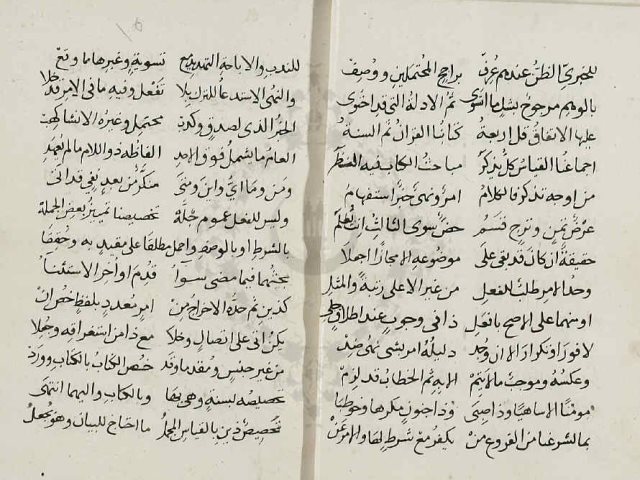 للخبري الظن عندهم عرف براجح المحتملين ووصف
بالوهم مرجوح بشك ما استوى ثم الادلة التي قد احتوى
عليها الاتفاق قل اربعة كتابنا القران ثم السنة
اجماعنا القياس كل يذكر مباحث الكتاب فيه النظر
من اوجه تذكر فالكلام امر ونهي خبر استفهام
عرض تمن وترج قسم حض سوى الثالث انشا يعلم
حقيقة ان كان قد بقي على موضوعه المجاز ان جلا
وحد الامر طلب للفعل من غير الاعلى رتبة والمثل
او منهما على الاصح بافعل ذا في وجوب عند اطلاق جلي
لا فورا وتكرارا الا ان وجد دليله امر بشي نهي ضد
وعكسه وموجب ما لم يتم الا به ثم الخطاب قد لزم
مومنا لا ساهيا وذا صبى وذا جنون مكرها وخوطبا
بالشرع من الفروع من يكفر مع شرط لها والامر عن
للندب والاباحة التهديد مع تسوية وغيرها ما وقع
والنهي الاستدعا للترك بلا تفعل وفيه ما في الامر قد خلا
الخبر الذي لصدق وكذب محتمل وغيره الانشا كهب
العام ما يشمل فوق واحد الفاظه ذو اللام ما لم يعهد
ومن وما اي واين ومتى منكر من بعد نفي قد اتى
وليس للفعل عموم جملة تخصيصنا تمييز بعض الجملة
بالشرط او بالوصف واحمل مطلقا على مقيد به وحققا
بحثهما فيما مضى سوا قدم او اخر الاستثنا
كذين ثم حده الاخراج من امر معدد بلفظ خص ان
يكن اتى على اتصال وخلا مع ذا من استغراقه وجلا
من غير جنس ومقدما وقد خص الكتاب بالكتاب وورد
تخصيصه لسنة وهي بها وبالكتاب واليهما انتهى
تخصيص ذين بالقياس المجمل ما احتاج للبيان وهو يجعل